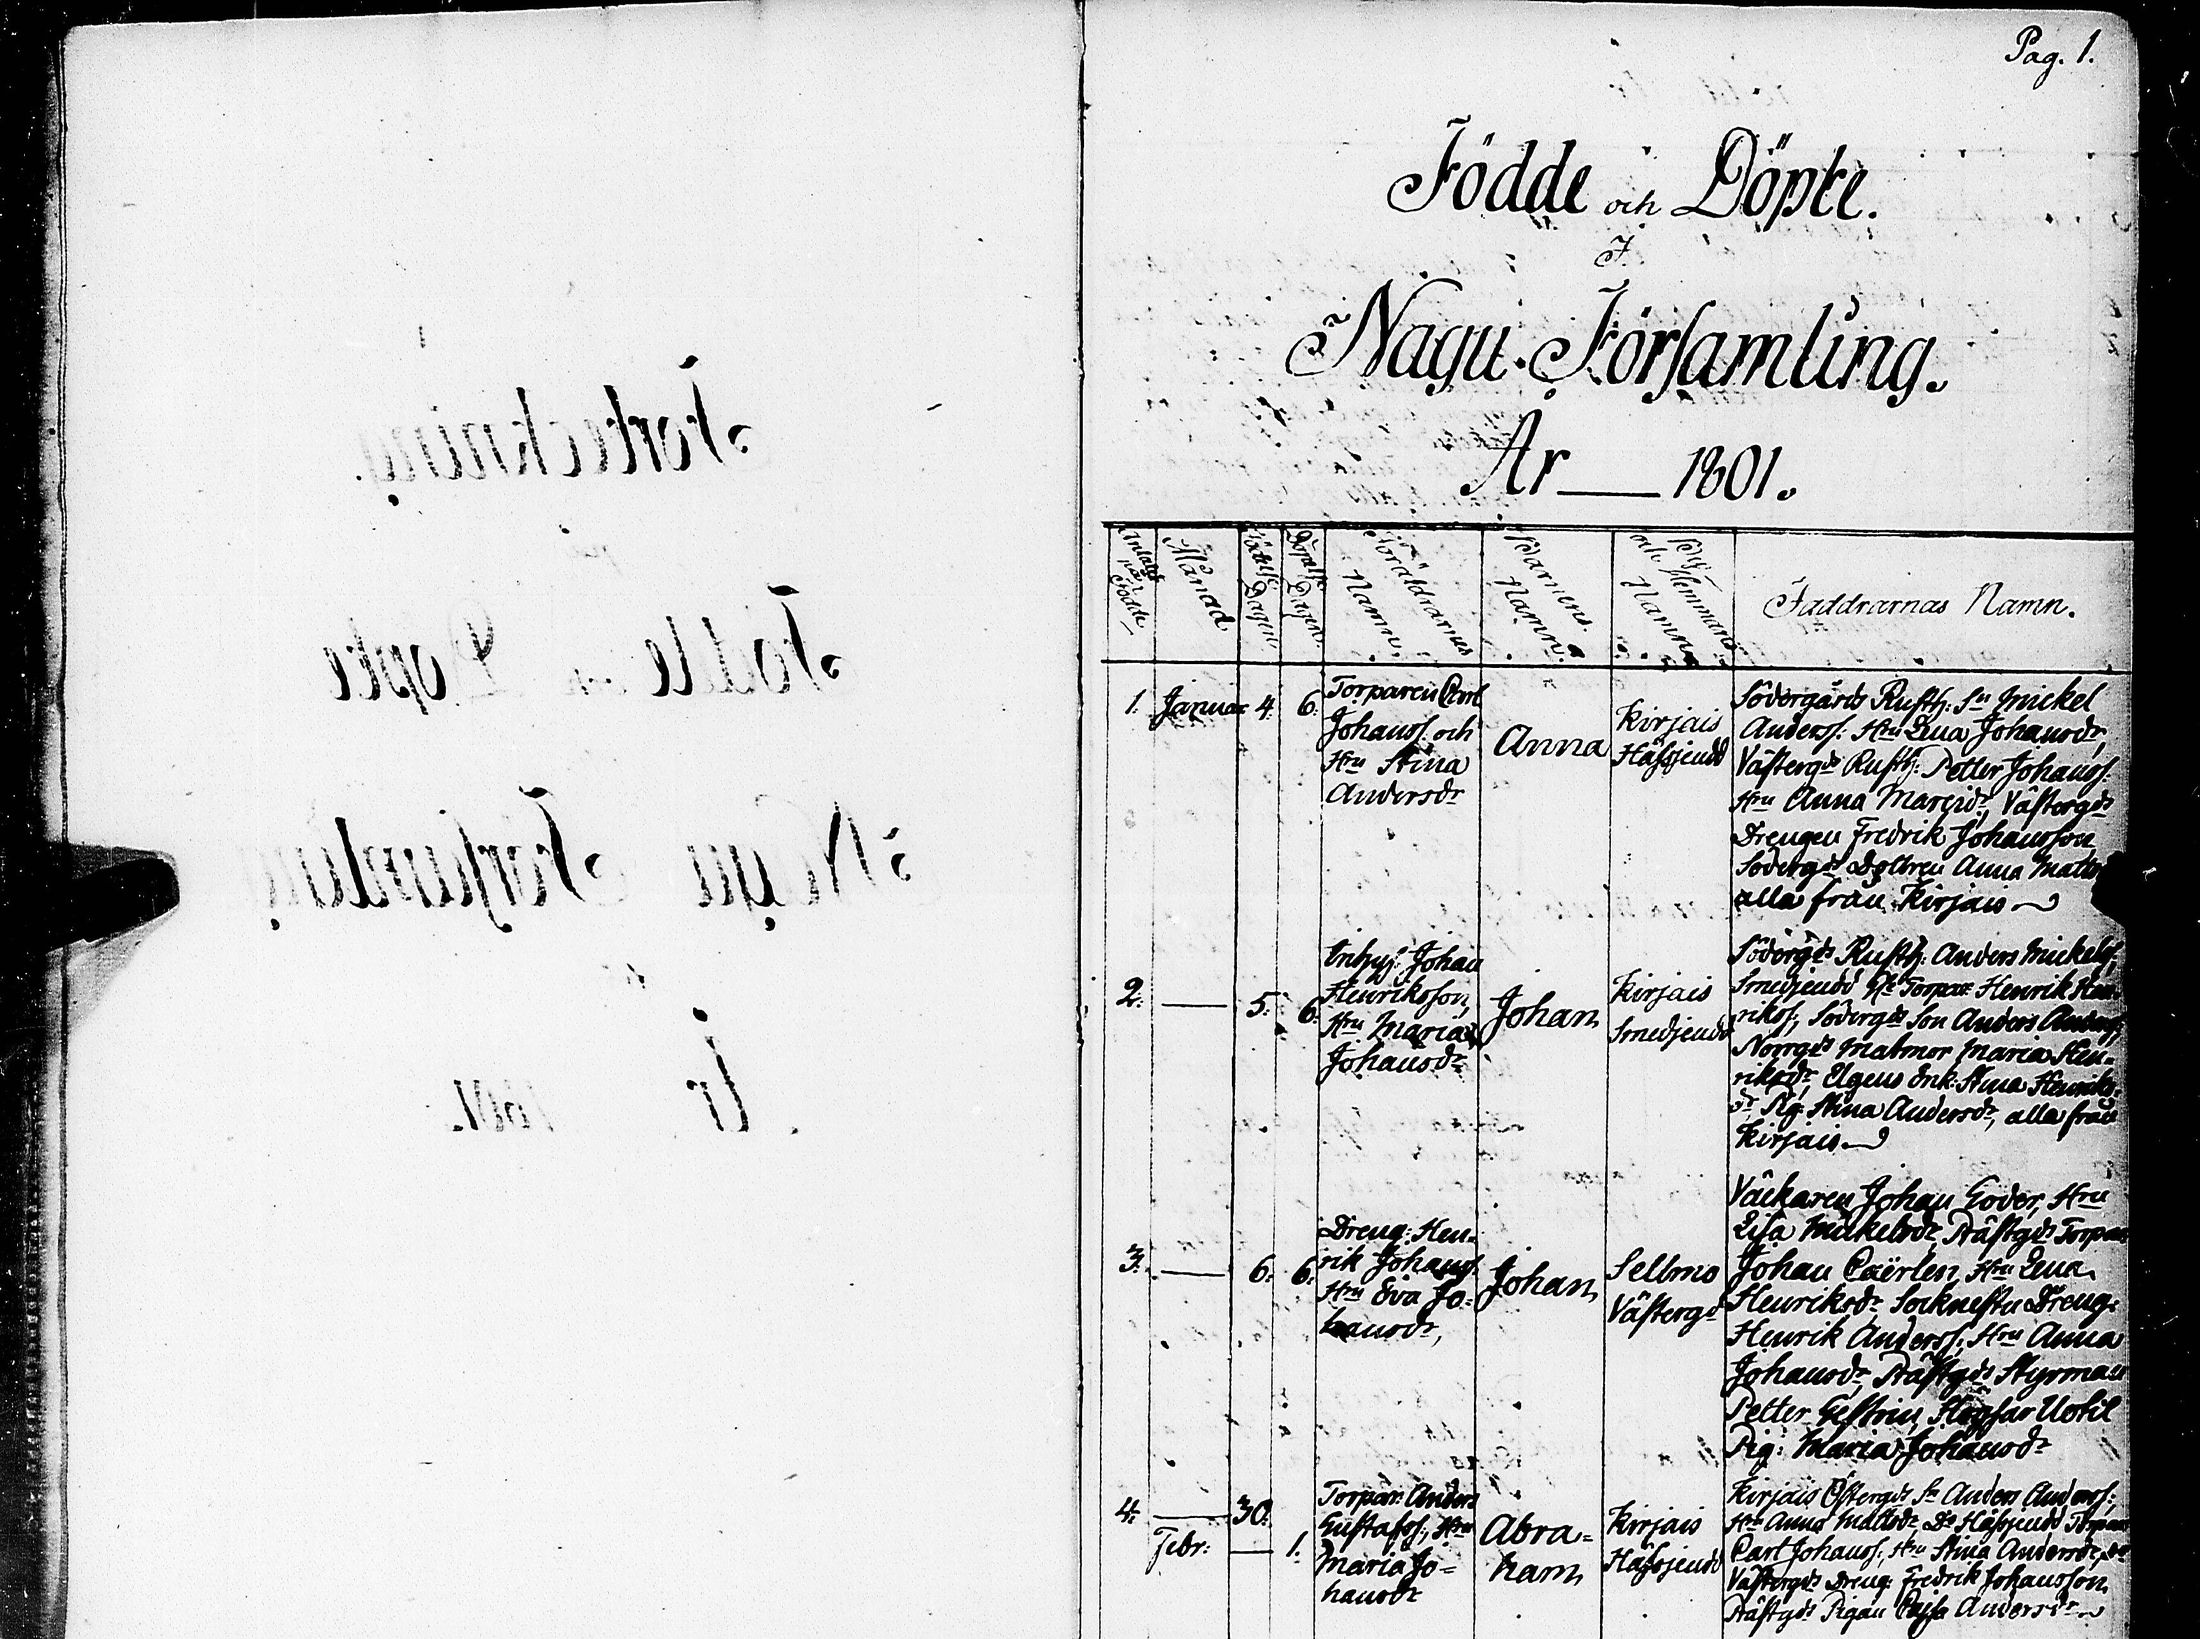 Pag. 1.
Födde och Döpte.
I
Nagu Församling.
År — 1801.
Antalet på Födde
Månad
Födelse Dagen
Döpelse Dagen
Föräldrarnas Namn.
Barnens Namn.
By- och Hemmans Namn
Faddrarnas Namn.
1. Januar 4. 6.
Torparen Carl
Johanss. och
Hru Stina
Andersdr
Anna
Kirjais
Hässjeudd
Södergårds Rusth: Sn Mickel
Anderss: Hru Lena Johansdr,
Västergds Rusth: Petter Johanss.
Hru Anna Marjidr, Västergds
Drengen Fredrik Johansson,
Södergds Dottren Anna Matts
alla från Kirjais
2. — 5. 6.
Inhys: Johan
Henriksson,
Hru Maria
Johansdr
Johan
Kirjais
Smedjeudd
Södergds Rusth: Anders Mickelss,
Smedjeudd Torpar Henrik Hen-
rikss, Södergds Son Anders Anderss,
Norrgds Matmor Maria Hen-
riksdr, Elgens Enk: Stina Henriks-
dr Pig: Stina Andersdr, alla från
Kirjais
3. — 6. 6.
Dreng: Hen-
rik Johanss.
Hru Eva Jo-
hansdr,
Johan
Sellmo
Västergd
Väckaren Johan Goder, Hru
Lisa Mickelsdr, Prästgds Torpar
Johan Caërlen, Hru Lena
Henriksdr Socknestu Dreng:
Henrik Anderss, Hru Anna
Johansdr, Prästgds Styrman
Petter Gestrin, Högsar Uvtil
Pig: Maria Johansdr
4. — 30.
Febr: — 1.
Torpar: Anders
Gustafss, Hru
Maria Jo-
hansdr
Abra-
ham
Kirjais
Hässjeudd
Kirjais Östergds Sn Anders Anderss,
Hru Anna Mattsdr, Do Hässjeudd Torpar
Carl Johanss, Hru Stina Andersdr, Do
Västergds Dreng: Fredrik Johansson
Prästgds Pigan Cajsa Andersdr